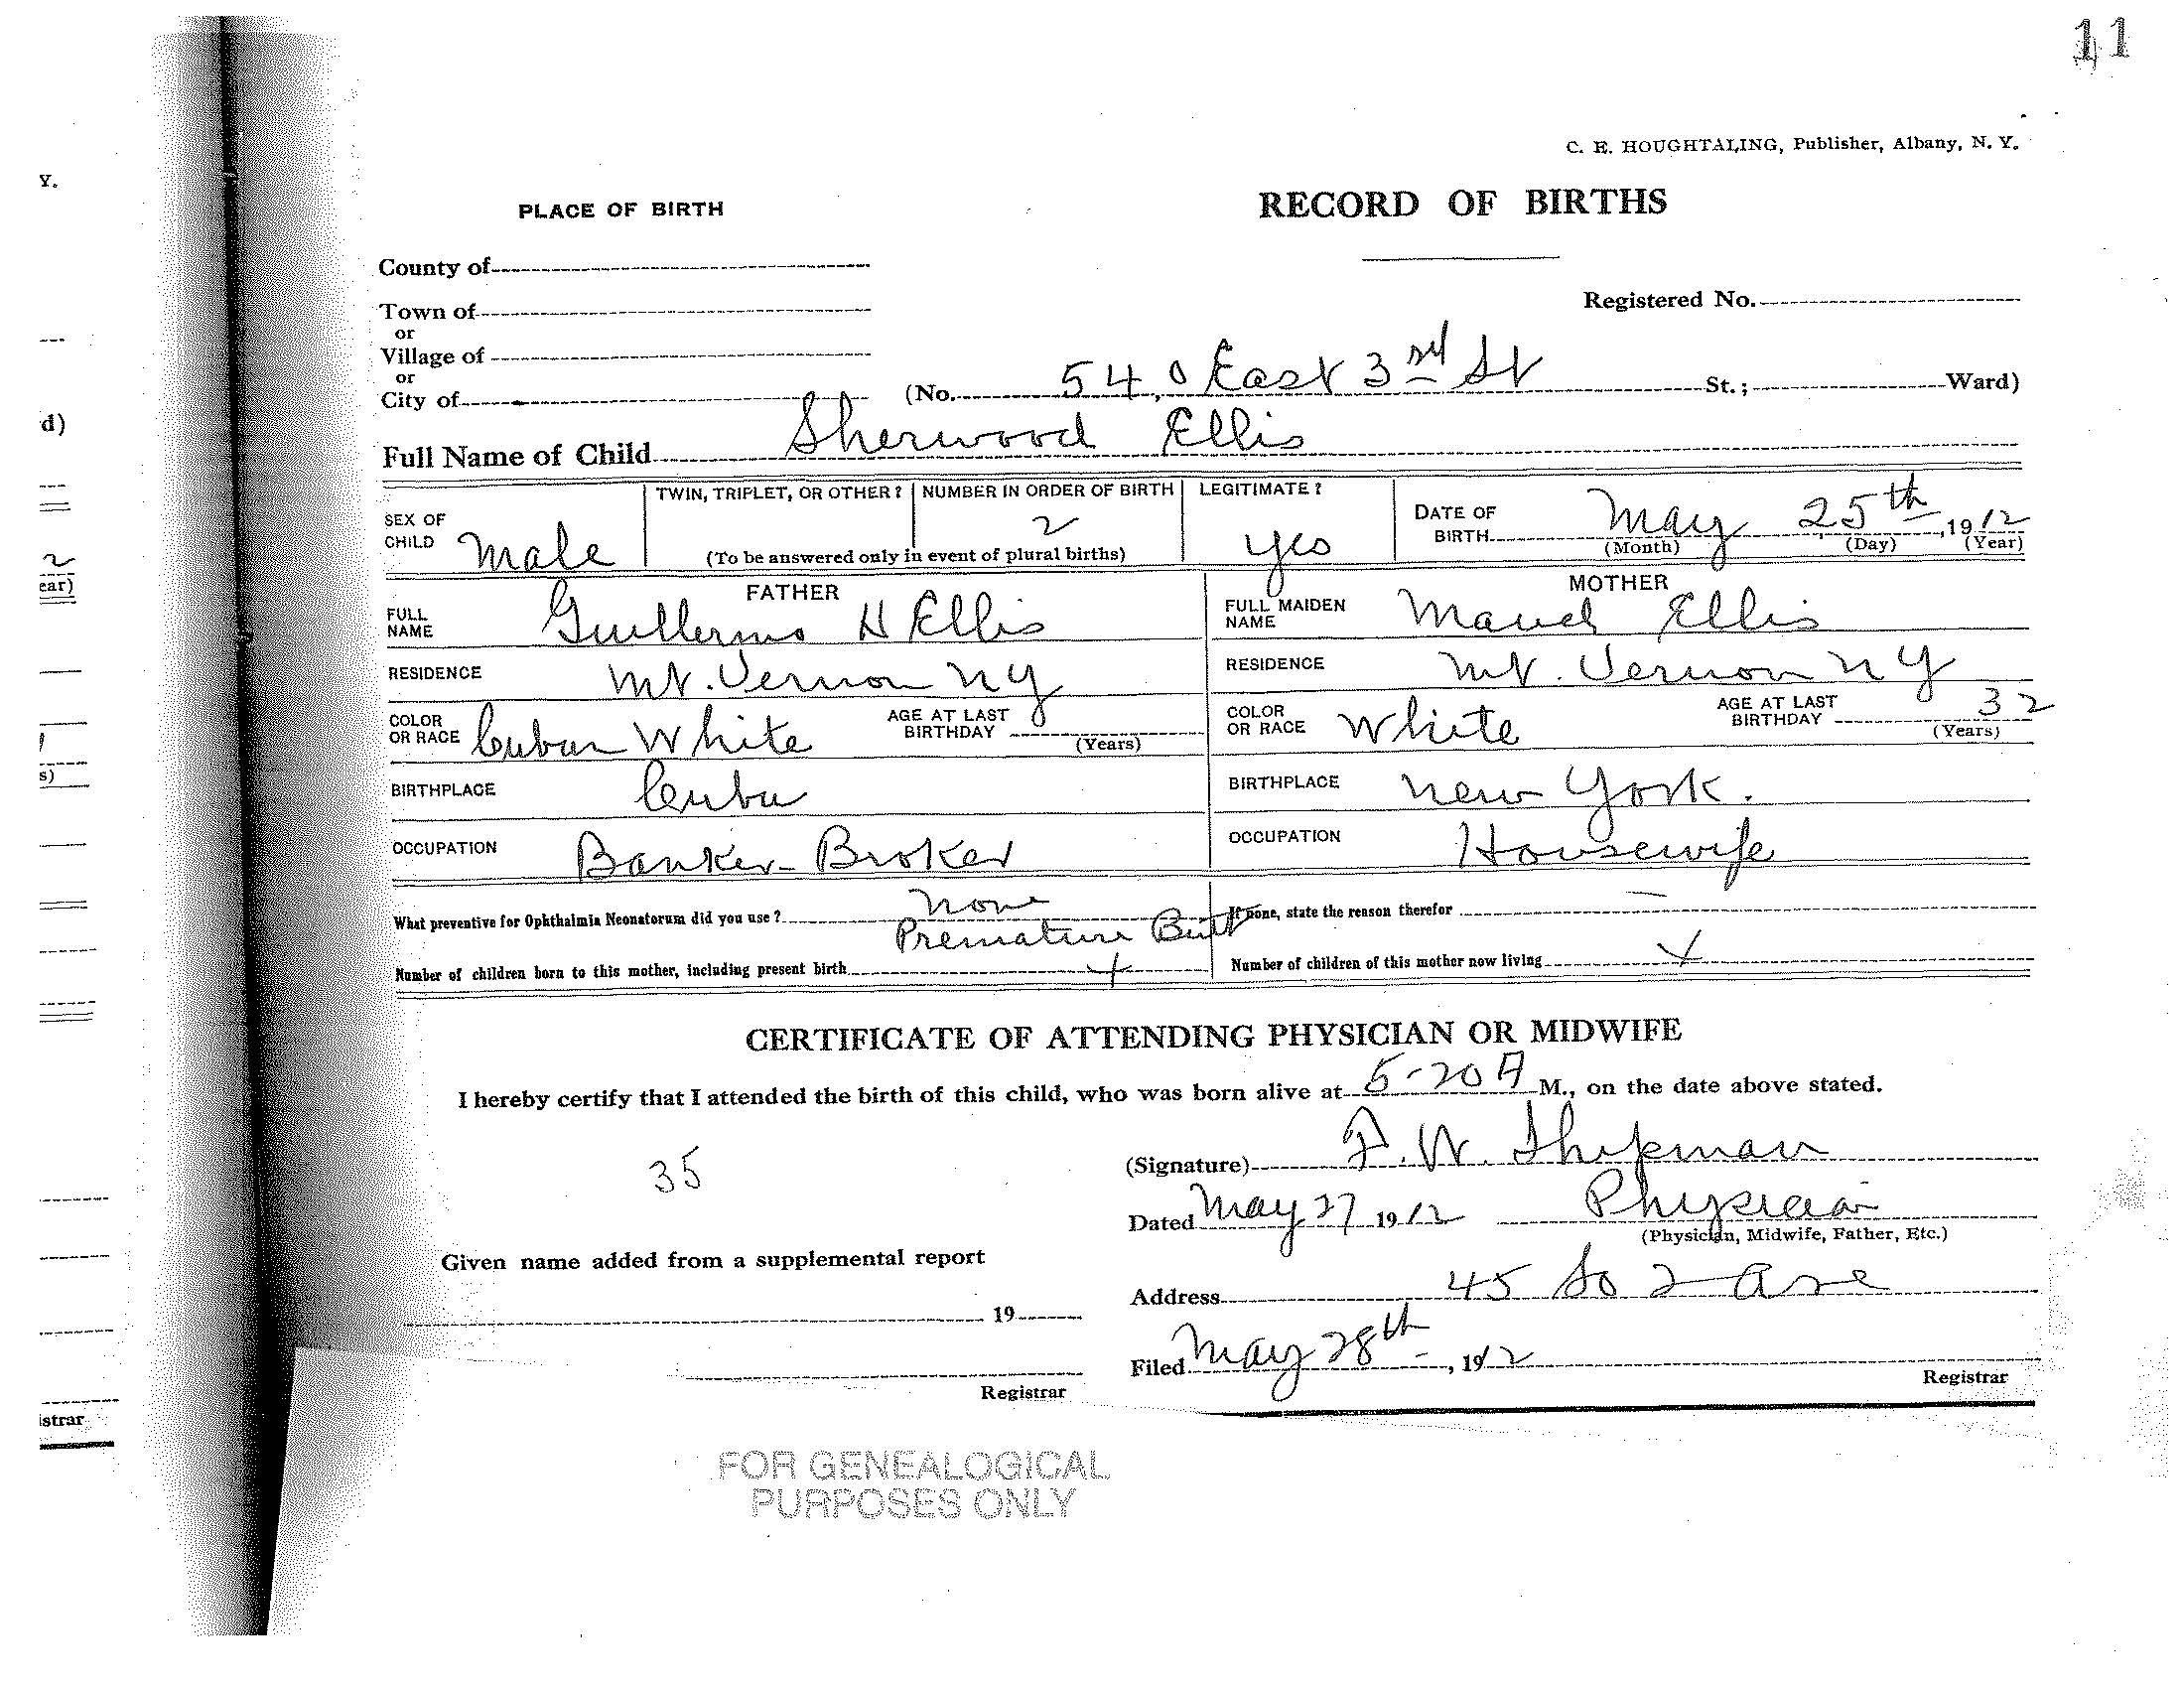 11
C. E. HOUGHTALING, Publisher, Albany, N. Y.
Y.
PLACE OF BIRTH
RECORD OF BIRTHS
County of
Registered No.
Town of
or
Village of
or
City of
(No. 54,0 East 3rd St St.; Ward)
d)
Full Name of Child Sherwood Ellis
TWIN, TRIPLET, OR OTHER? NUMBER IN ORDER OF BIRTH LEGITIMATE?
SEX OF CHILD Male 2 yes DATE OF BIRTH May 25th, 1912
(To be answered only in event of plural births) (Month) (Day) (Year)
2
ear)
FATHER MOTHER
FULL NAME Guillermo H Ellis FULL MAIDEN NAME Maud Ellis
RESIDENCE Mt. Vernon NY RESIDENCE Mt. Vernon NY
COLOR OR RACE Cuban White AGE AT LAST BIRTHDAY (Years) COLOR OR RACE White AGE AT LAST BIRTHDAY 32 (Years)
s)
BIRTHPLACE Cuba BIRTHPLACE New York.
OCCUPATION Banker-Broker OCCUPATION Housewife
What preventive for Ophthalmia Neonatorum did you use? None If none, state the reason therefor —
Premature Birt
Number of children born to this mother, including present birth 4 Number of children of this mother now living 4
CERTIFICATE OF ATTENDING PHYSICIAN OR MIDWIFE
I hereby certify that I attended the birth of this child, who was born alive at 5-20 A M., on the date above stated.
35
(Signature) F. W. Shipman
Dated May 27 1912 Physician
(Physician, Midwife, Father, Etc.)
Given name added from a supplemental report
Address 45 So 2 Ave
19
Filed May 28th, 1912
Registrar Registrar
istrar
FOR GENEALOGICAL
PURPOSES ONLY